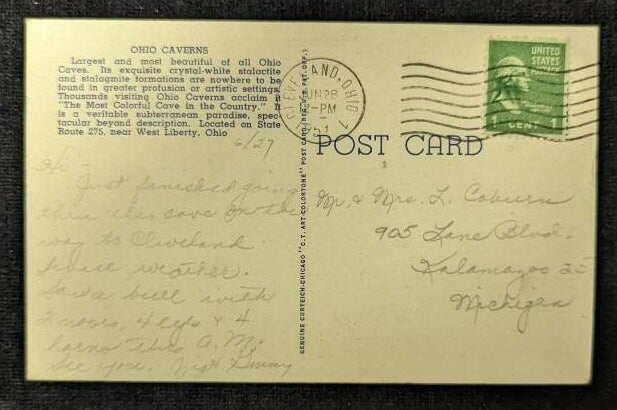 OHIO CAVERNS
Largest and most beautiful of all Ohio
Caves. Its exquisite crystal-white stalactite
and stalagmite formations are nowhere to be
found in greater profusion or artistic settings.
Thousands visiting Ohio Caverns acclaim it
"The Most Colorful Cave in the Country." It
is a veritable subterranean paradise, spec-
tacular beyond description. Located on State
Route 275, near West Liberty, Ohio
6/27
Hi
Just finished going
thru this cave on the
way to Cleveland
weather.
Saw a bull with
2 noses, 4 legs & 4
horns this A.M.
See you.
GENUINE CURTEICH-CHICAGO "C.T. ART-COLORTONE" POST CARD (REG. U.S. PAT. OFF.)
CLEVELAND, OHIO 1
JUN 28
2-PM
UNITED
STATES
1 CENT 1
POST CARD
Mr. & Mrs. L. Coburn
905 Lane Blvd.
Kalamazoo 25
Michigan